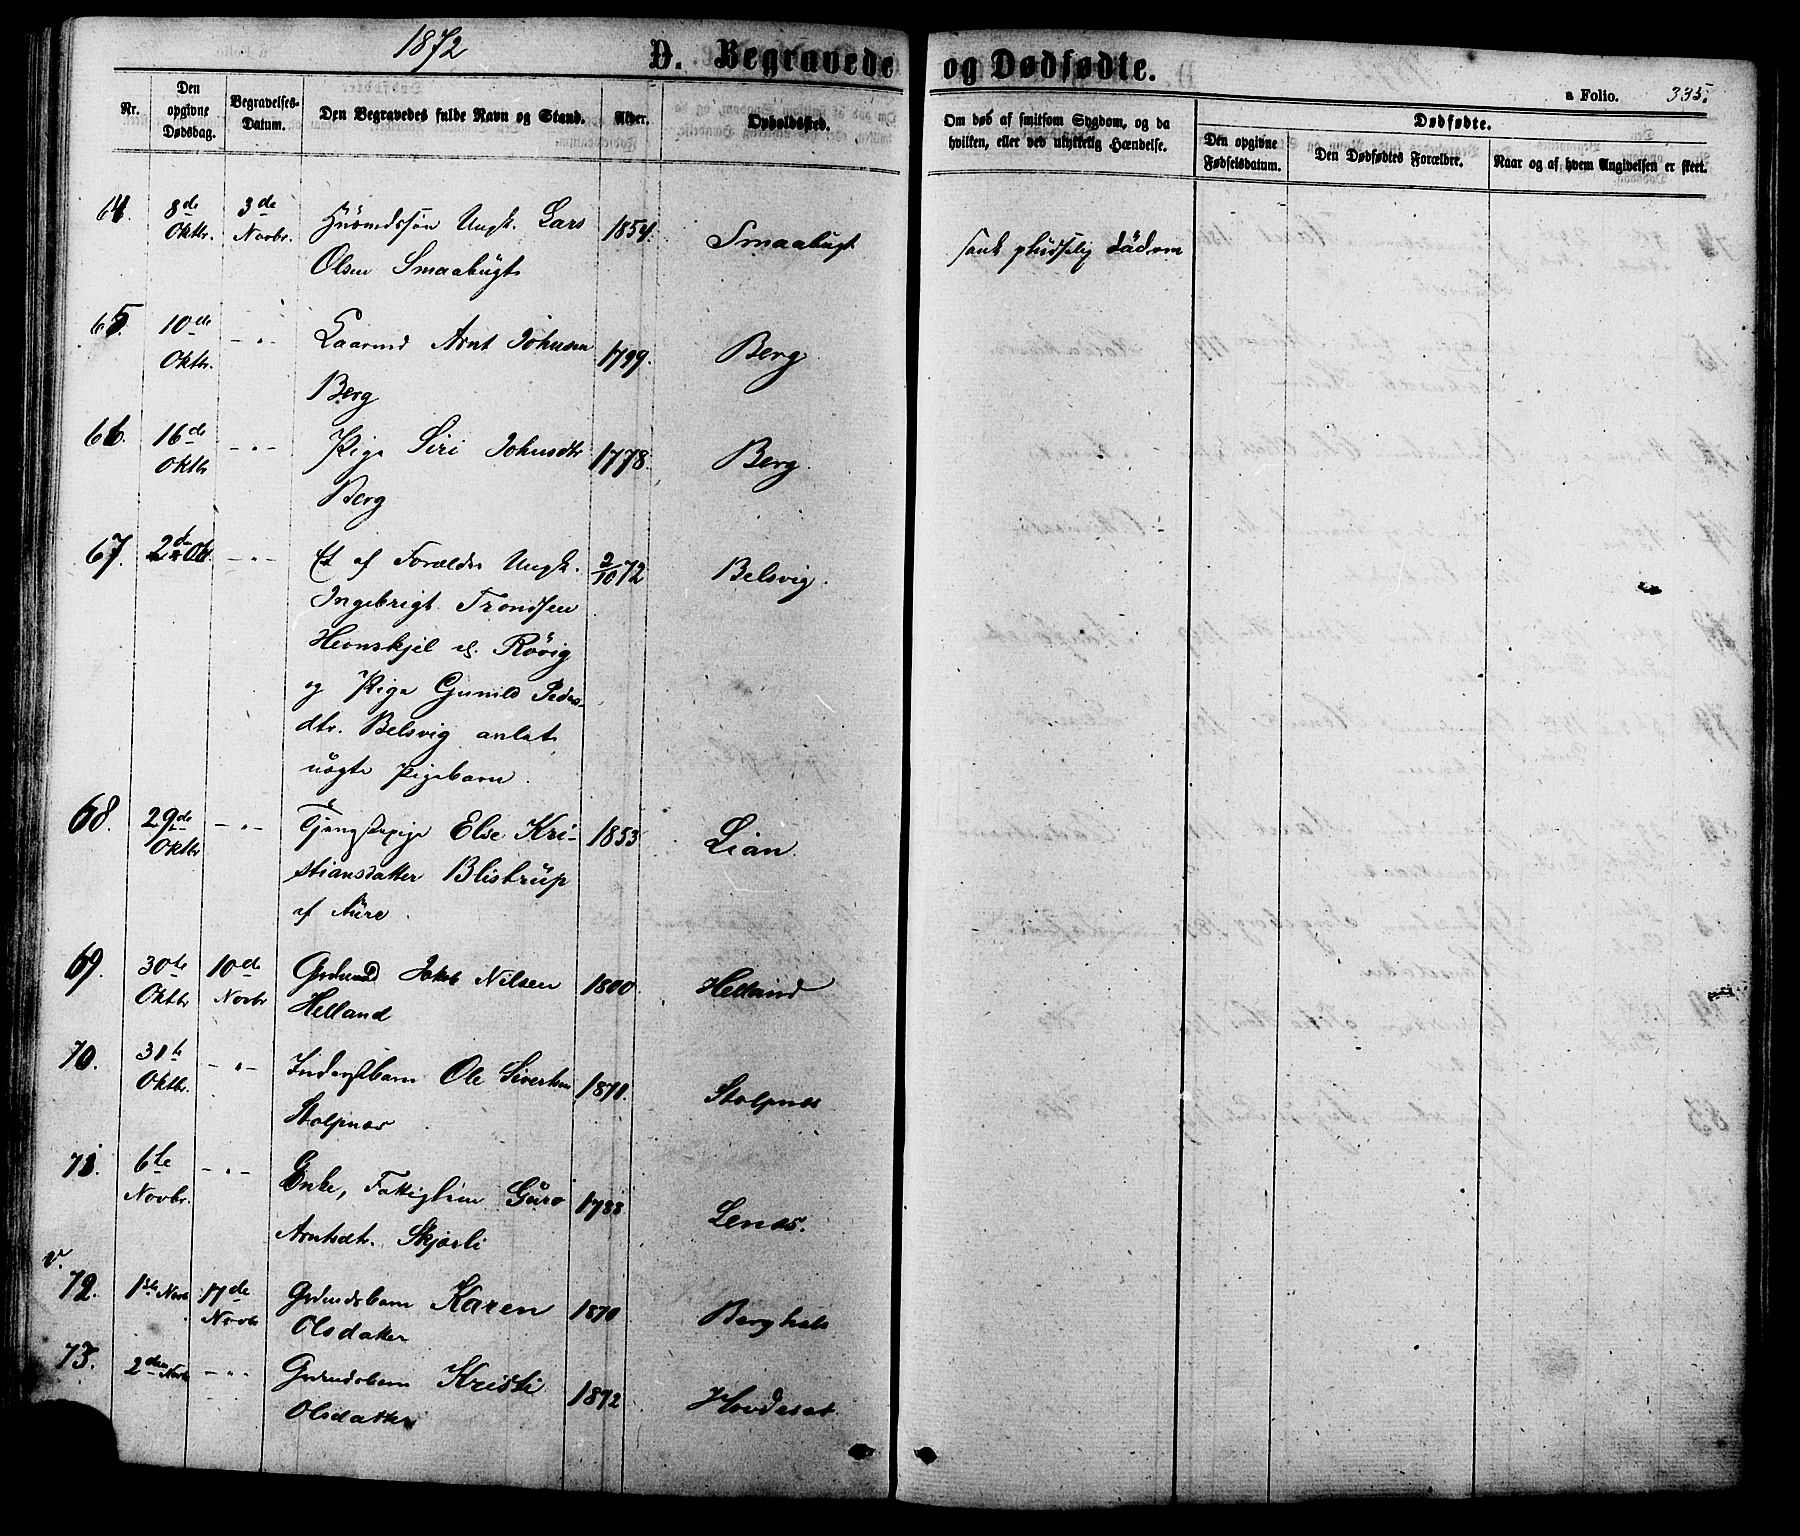 1872
D. Begravede og Dødfødte.
a Folio. 335.
Nr. Den opgivne Dødsdag. Begravelses-Datum. Den Begravedes fulde Navn og Stand. Alder. Opholdssted. Om død af smitsom Sygdom, og da hvilken, eller ved ulykkelig Hændelse. Dødfødte.
Den opgivne Fødselsdatum. Den Dødfødtes Forældre. Naar og af hvem Angivelsen er skeet.
64. 8de Oktbr. 3de Novbr. Husmdssøn Ungk. Lars 1854. Smaabugt sank pludselig död om
Olsen Smaabugt
65. 10de Oktbr. -"- Gaarmd Arnt Johnsen 1799. Berg
Berg
66. 16de Oktbr -"- Pige Siri Johnsdtr 1778. Berg.
Berg
67. 2den Okt. -"- Et af Forældre Ungk. 2/10 72 Belsvig.
Ingebrigt Trondsen
Hevnskjel Røvig
og Pige Gunild Peders-
dtr. Belsvig anlat
uægte Pigebarn.
68. 29de Oktbr -"- Tjenestepige Else Kri- 1853 Lian.
stiansdatter Blistrup
af Aure.
69. 30te Oktbr 10de Novbr Grdmand Jakob Nilsen 1800 Helland
Helland
70. 31te Oktbr. -"- Inderstbarn Ole Sivertsen 1870. Stolpnæs
Stolpnæs
71. 6te Novbr. -"- Enke, Fattiglem Guro 1788 Lenæs.
Arntsdtr. Skjærli
v.
72. 1ste Novb 17de Novbr Grdmdsbarn Karen 1870 Berghals
Olsdatter
73. 2den Novb -"- Grdmdsbarn Kristi 1872 Hovdeset.
Olsdatter